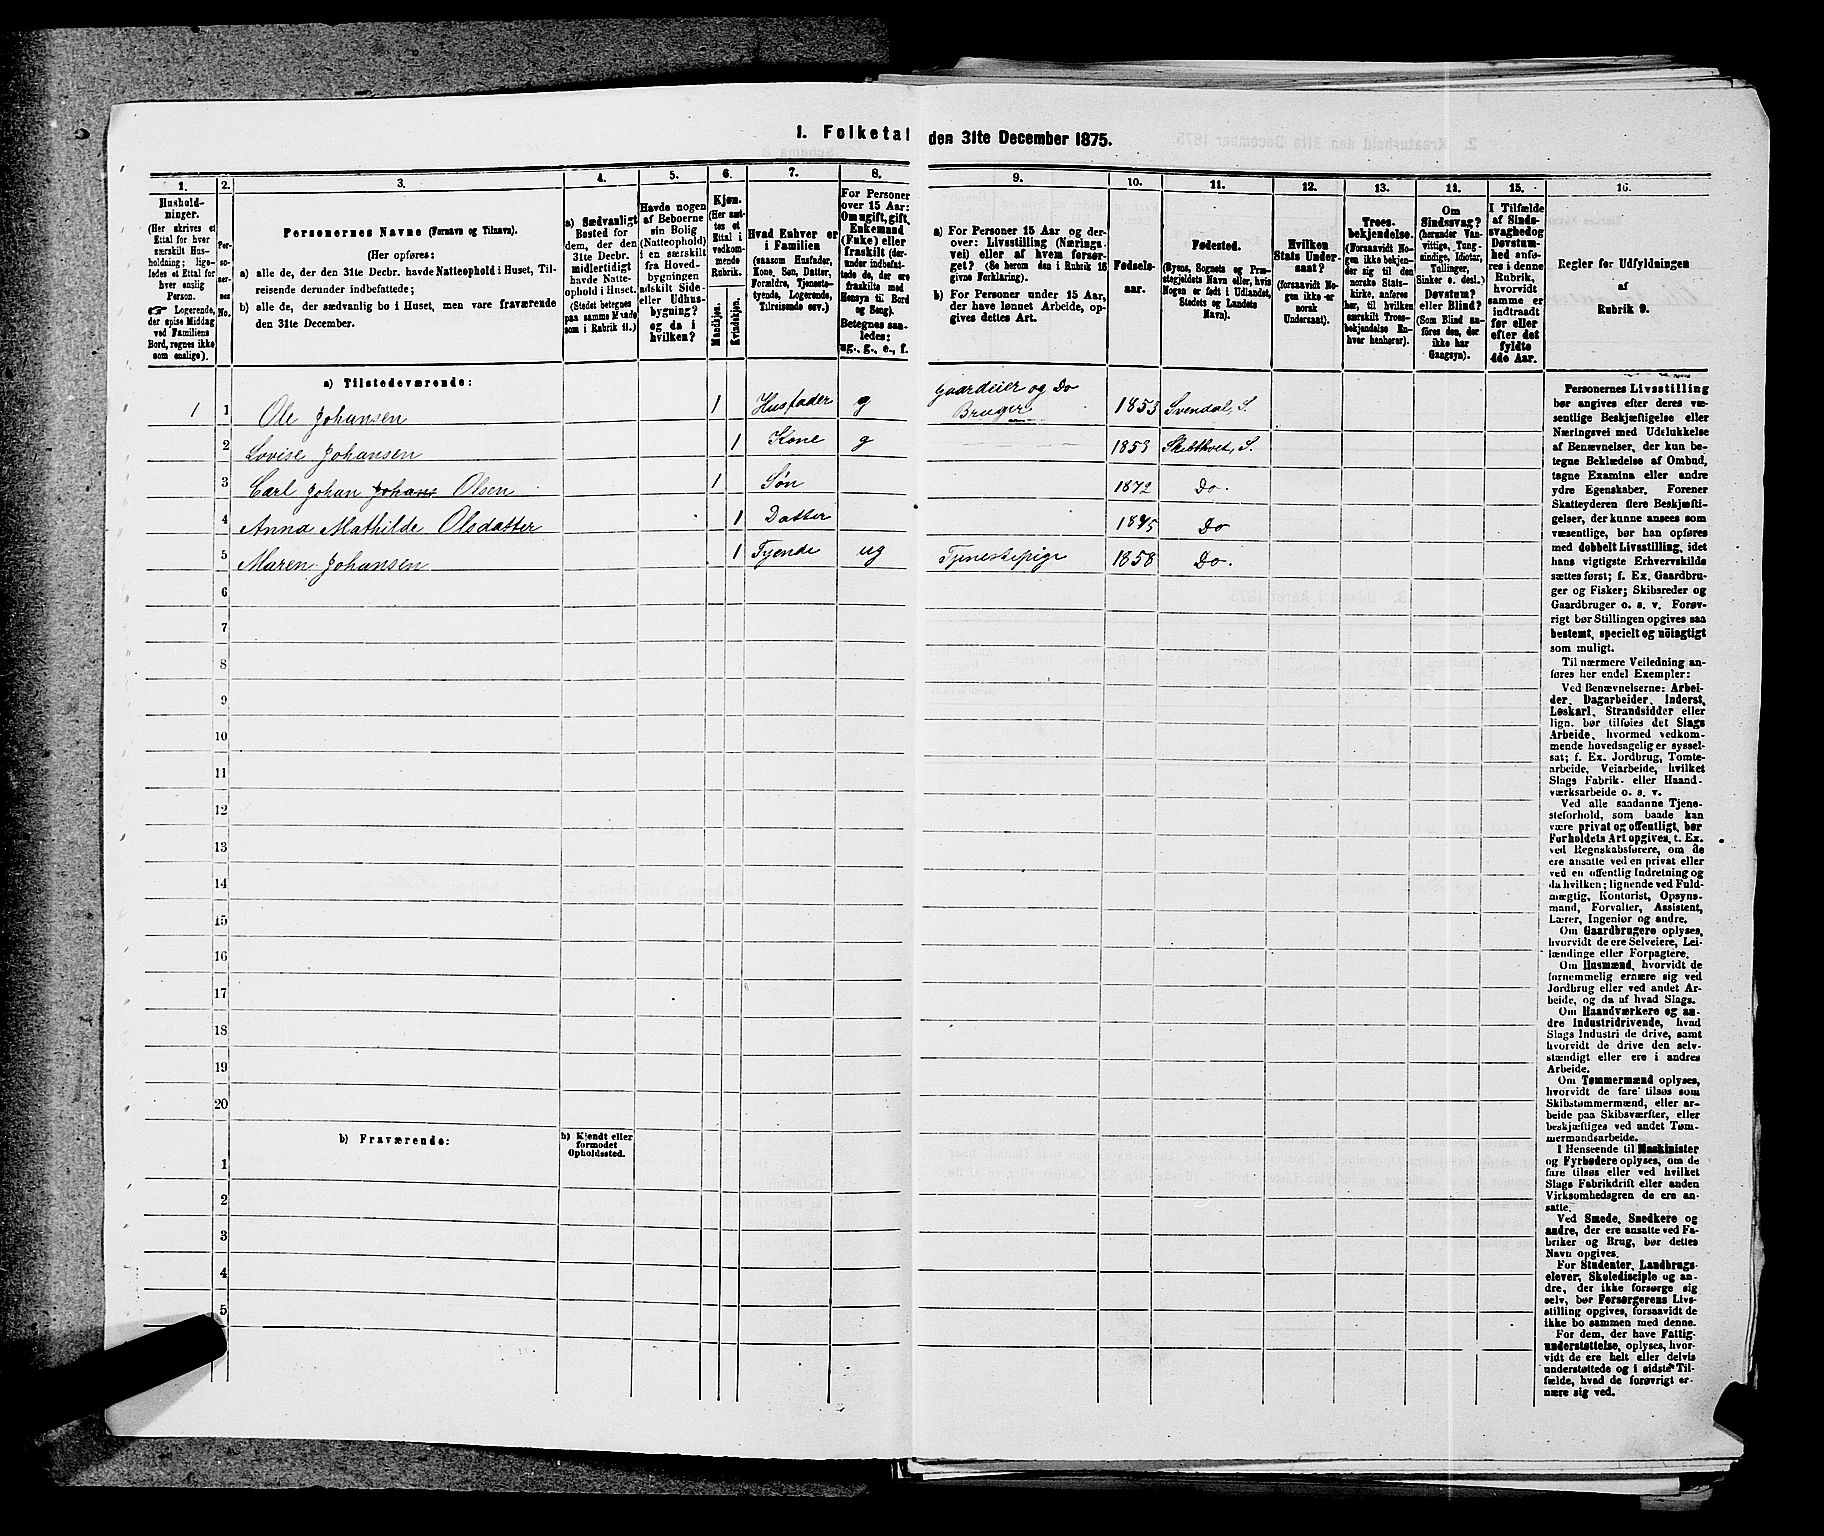 1. Folketal den 31te December 1875.
1. 2. 3. 4. 5. 6. 7. 8. 9. 10. 11. 12. 13. 14. 15. 16.
Hushold-
ninger.
(Her skrives et
Ettal for hver
særskilt Hus-
holdning; lige-
ledes et Ettal for
hver enslig
Person.
☞ Logerende,
der spise Middag
ved Familiens
Bord, regnes ikke
som enslige).
Per-
so-
ner-
nes
No.
Personernes Navne (Fornavn og Tilnavn).
(Her opføres:
a) alle de, der den 31te Decbr. havde Natteophold i Huset, Til-
reisende derunder indbefattede;
b) alle de, der sædvanlig bo i Huset, men vare fraværende
den 31te December.
a) Sædvanligt
Bosted for
dem, der den
31te Decbr.
midlertidigt
havde Natte-
ophold i Huset.
(Stedet betegnes
paa samme Maade
som i Rubrik 11.)
Havde nogen
af Beboerne
sin Bolig
(Natteophold)
i en særskilt
fra Hoved-
bygningen
adskilt Side-
eller Udhus-
bygning?
og da i
hvilken?
Kjøn.
(Her sæt-
tes et
Ettal i
vedkom-
mende
Rubrik.
Mandkjøn.
Kvindekjøn.
Hvad Enhver er
i Familien
(saasom Husfader,
Kone, Søn, Datter,
Forældre, Tjeneste-
tyende, Logerende,
Tilreisende osv.)
For Personer
over 15 Aar:
Om ugift, gift,
Enkemand
(Enke) eller
fraskilt (der-
under indbefat-
tede de, der ere
fraskilte med
Hensyn til Bord
og Seng).
Betegnes saa-
ledes:
ug., g., e., f.
a) For Personer 15 Aar og der-
over: Livsstilling (Nærings-
vei) eller af hvem forsør-
get? (Se herom den i Rubrik 16
givne Forklaring).
b) For Personer under 15 Aar,
der have lønnet Arbeide, op-
gives dettes Art.
Fødsels-
aar.
Fødested.
(Byens, Sognets og Præ-
stegjeldets Navn eller, hvis
Nogen er født i Udlandet,
Stedets og Landets
Navn).
Hvilken
Stats Under-
saat?
(forsaavidt No-
gen ikke er
norsk
Undersaat).
Troes-
bekjendelse.
(Forsaavidt No-
gen ikke bekjen-
der sig til den
norske Stats-
kirke, anføres
her, til hvilken
særskilt Troes-
bekjendelse En-
hver henhører).
Om
Sindssvag?
(herunder Van-
vittige, Tung-
sindige, Idiotar,
Tullinger,
Sinker o. desl.)
Døvstum?
eller Blind?
(Som Blind an-
føres den, der
ikke har
Gangsyn).
I Tilfælde
af Sinds-
svaghed og
Døvstum-
hed anfø-
res i denne
Rubrik,
hvorvidt
samme er
indtraadt
før eller
efter det
fyldte
4de Aar.
Regler før Udfyldningen
af
Rubrik 9.
a) Tilstedeværende:
1 1 Ole Johansen 1 Husfader g Gaardeier og Do Bruger 1853 Svendal, S.
2 Lovise Johansen 1 Kone g 1853 Skibthvet, S.
3 Carl Johan Johans Olsen 1 Søn 1872 Do.
4 Anna Mathilde Olsdatter 1 Datter 1875 Do
5 Maren Johansen 1 Tyende ug Tjenestepige 1858 Do.
6
7
8
9
10
11
12
13
14
15
16
17
18
19
20
b) Fraværende:
b) Kjendt eller
formodet
Opholdssted.
1
2
3
4
5
Personernes Livsstilling
bør angives efter deres væ-
sentlige Beskjæftigelse eller
Næringsvei med Udelukkelse
af Benævnelser, der kun be-
tegne Beklædelse af Ombud,
tagne Examina eller andre
ydre Egenskaber. Forener
Skatteyderen flere Beskjæfti-
gelser, der kunne ansees som
væsentlige, bør han opføres
med dobbelt Livsstilling, idet
hans vigtigste Erhvervskilde
sættes først; f. Ex. Gaardbru-
ger og Fisker; Skibsreder og
Gaardbruger o. s. v. Forøv-
rigt bør Stillingen opgives saa
bestemt, specielt og nöiagtigt
som muligt.
Til nærmere Veiledning an-
føres her endel Exempler:
Ved Benævnelserne: Arbei-
der, Dagarbeider, Inderst,
Løskarl, Strandsidder eller
lign. bør tilføies det Slags
Arbeide, hvormed vedkom-
mende hovedsagelig er syssel-
sat; f. Ex. Jordbrug, Tomte-
arbeide, Veiarbeide, hvilket
Slags Fabrik- eller Haand-
værksarbeide o. s. v.
Ved alle saadanne Tjene-
steforhold, som baade kan
være privat og offentligt, bør
Forholdets Art opgives, t. Ex.
ved Regnskabsførere, om de
ere ansatte ved en privat eller
ved en offentlig Indretning og
da hvilken; lignende ved Fuld-
mægtig, Kontorist, Opsyns-
mand, Forvalter, Assistent,
Lærer, Ingeniør og andre.
Om Gaardbrugere oplyses,
hvorvidt de ere Selveiere, Lei-
lændinge eller Forpagtere.
Om Husmænd, hvorvidt de
fornemmelig ernære sig ved
Jordbrug eller ved andet Ar-
beide, og da af hvad Slags.
Om Haandværkere og an-
dre Industridrivende, hvad
Slags Industri de drive, samt
hvorvidt de drive den selv-
stændigt eller ere i andres
Arbeide.
Om Tømmermænd oplyses,
hvorvidt de fare tilsøs som
Skibstømmermænd, eller ar-
beide paa Skibsværfter, eller
beskjæftiges ved andet Tøm-
mermandsarbeide.
I Henseende til Maskinister
og Fyrbødere oplyses, om de
fare tilsøs eller ved hvilket
Slags Fabrikdrift eller anden
Virksomhedsgren de ere an-
satte.
Ved Smede, Snedkere og
andre, der ere ansatte ved Fa-
briker og Brug, bør dettes
Navn opgives.
For Studenter, Landbrugs-
elever, Skoledisciple og an-
dre, der ikke forsørge sig
selv, bør Forsørgerens Livs-
stilling opgives, forsaavidt de
ikke bo sammen med denne.
For dem, der have Fattig-
understøttelse, oplyses, hvor-
vidt de ere helt eller delvis
understøttede og i sidste Til-
fælde, hvad de forøvrigt er-
nære sig ved.